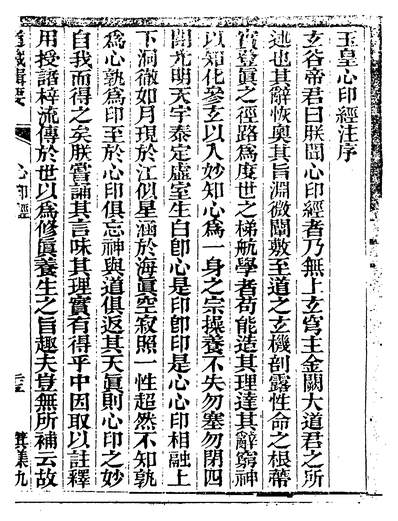 玉皇心印經注序
玄谷帝君曰朕聞心印經者乃無上玄穹主金闕大道君之所
述也其辭恢奥其旨淵微闡敷至道之玄機剖露性命之根蔕
實登眞之徑路爲度世之梯航學者苟能造其理達其辭窮神
以知化參玄以入妙知心爲一身之宗操養不失勿塞勿閉四
開光明天宇泰定虛室生白卽心是印卽印是心心印相融上
下洞徹如月現於江似星涵於海眞空寂照一性超然不知孰
爲心孰爲印至於心印俱忘神與道俱返其天眞則心印之妙
自我而得之矣朕嘗誦其言味其理實有得乎中因取以註釋
用授諸梓流傳於世以爲修眞養生之旨趣夫豈無所補云故
道藏輯要
心印經
箕集九